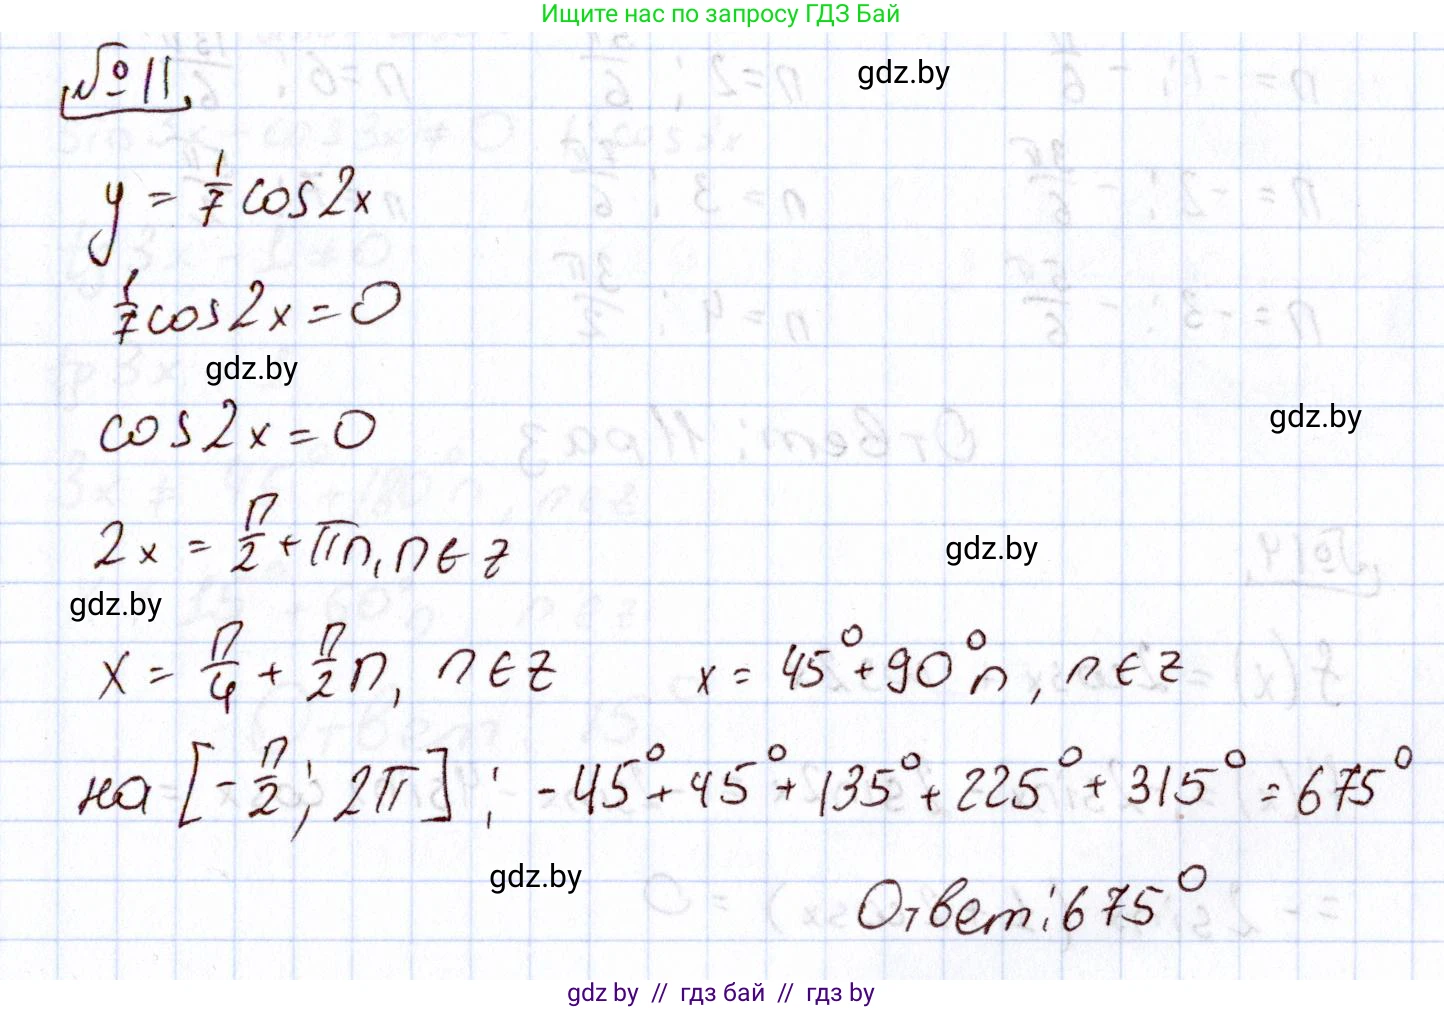 Ищите нас по запросу ГДЗ Бай
№11
gdz.by
y = 1/7 cos2x
1/7 cos2x = 0
gdz.by
cos2x = 0
gdz.by
2x = π/2 + πn, n ∈ z
gdz.by
gdz.by
x = π/4 + π/2 n, n ∈ z x = 45° + 90°n, n ∈ z
на [-π/2; 2π]; -45° + 45° + 135° + 225° + 315° = 675°
gdz.by
Ответ: 675°
gdz by // гдз бай // гдз by